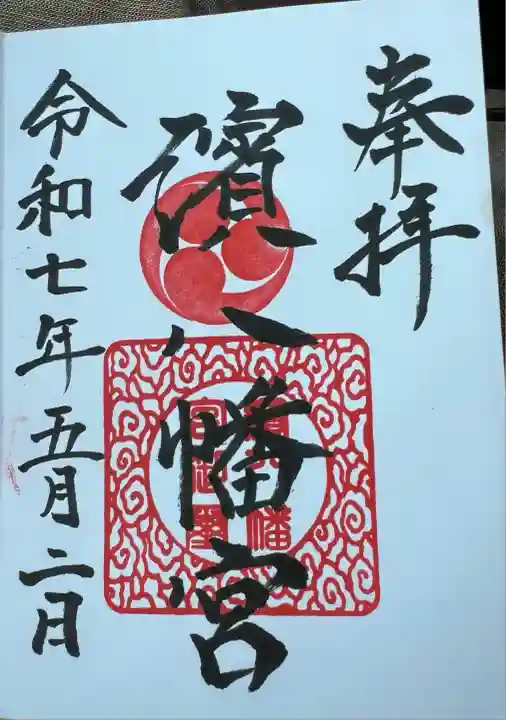 奉拝
濱八幡宮
令和七年五月二日